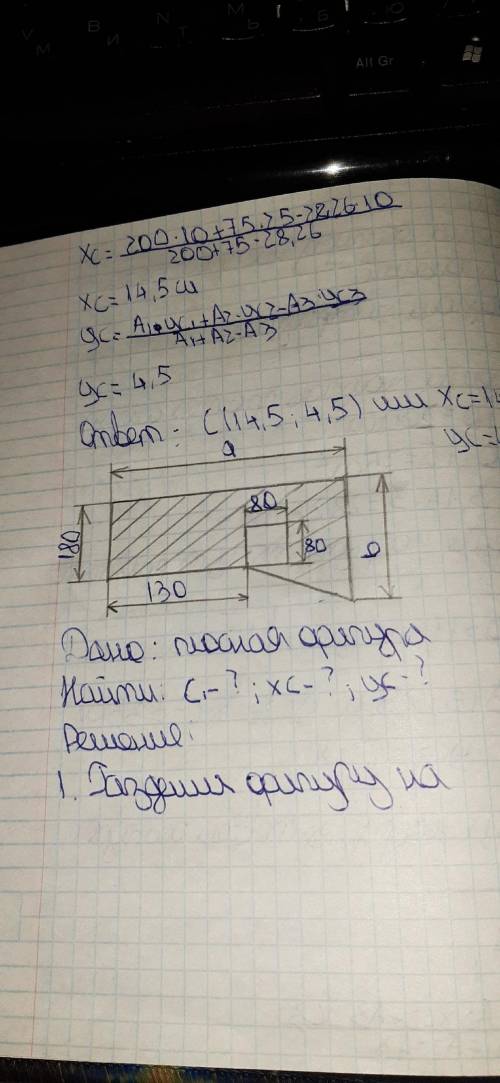 Alt Gr
xc = 200·10+75·25-28,26·10
200+75-28,26
xc = 14,5 см
yc = A1·yc1+A2·yc2-A3·yc3
A1+A2-A3
yc = 4,5
Ответ: C(14,5; 4,5) или xc=14
yc=
a
80
180
80
b
130
Дано: плоская фигура
Найти: C-?; xc-?; yc-?
Решение:
1. Разделим фигуру на